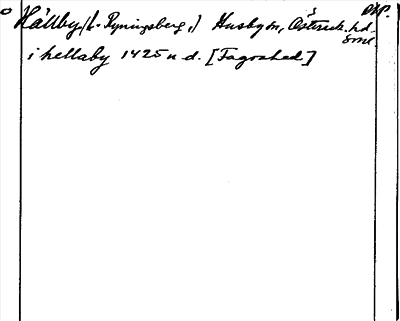 DKP.
Hällby, (L. Ryningsberg,) Husby sn, Österrek. hd
Sml.
i hellaby 1425 u.d. [Fagrahed]